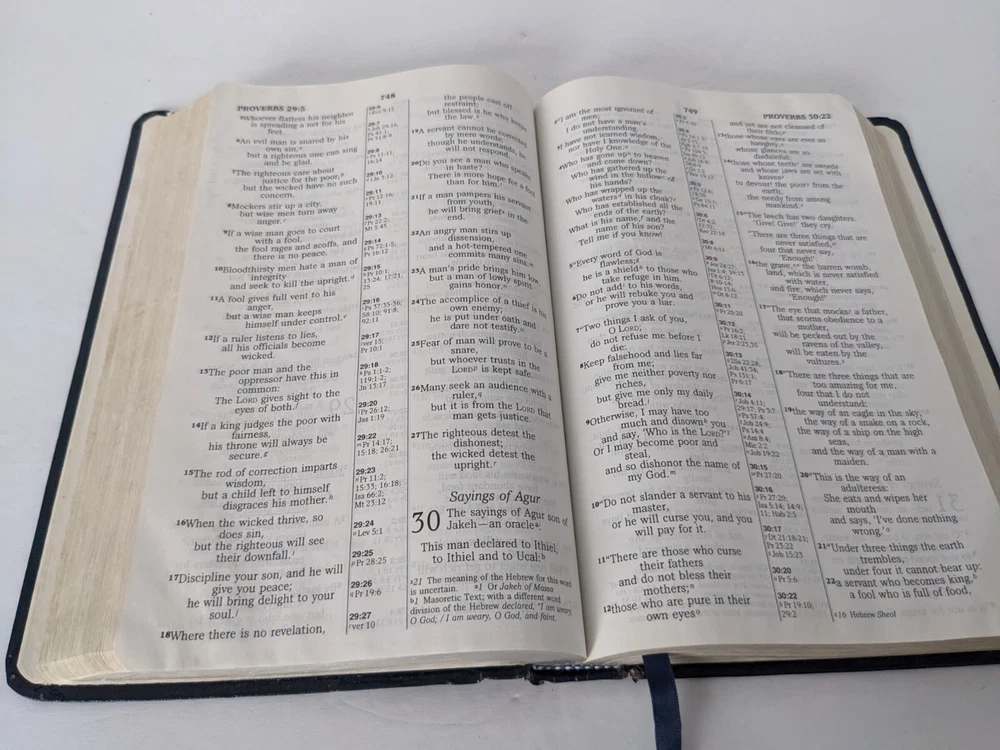 PROVERBS 29:5
748
5Whoever flatters his neighbor
is spreading a net for his
feet.
6An evil man is snared by his
own sin,
but a righteous one can sing
and be glad.
7The righteous care about
justice for the poor,
but the wicked have no such
concern.
8Mockers stir up a city,
but wise men turn away
anger.
9If a wise man goes to court
with a fool,
the fool rages and scoffs, and
there is no peace.
10Bloodthirsty men hate a man of
integrity
and seek to kill the upright.
11A fool gives full vent to his
anger,
but a wise man keeps
himself under control.
12If a ruler listens to lies,
all his officials become
wicked.
13The poor man and the
oppressor have this in
common:
The LORD gives sight to the
eyes of both.
14If a king judges the poor with
fairness,
his throne will always be
secure.
15The rod of correction imparts
wisdom,
but a child left to himself
disgraces his mother.
16When the wicked thrive, so
does sin,
but the righteous will see
their downfall.
17Discipline your son, and he will
give you peace;
he will bring delight to your
soul.
18Where there is no revelation,
29:20
Pr 26:12;
Jas 1:19
29:22
Pr 14:17;
15:18; 26:21
29:23
Pr 11:2;
15:33; 16:18;
Isa 66:2;
Mt 23:12
29:24
Lev 5:1
29:25
Pr 28:25
29:26
Pr 19:6
29:27
ver 10
the people cast off
restraint;
but blessed is he who keeps
the law.
19A servant cannot be corrected
by mere words;
though he understands, he
will not respond.
20Do you see a man who speaks
in haste?
There is more hope for a fool
than for him.
21If a man pampers his servant
from youth,
he will bring grief in the
end.
22An angry man stirs up
dissension,
and a hot-tempered one
commits many sins.
23A man's pride brings him low,
but a man of lowly spirit
gains honor.
24The accomplice of a thief is his
own enemy;
he is put under oath and
dare not testify.
25Fear of man will prove to be a
snare,
but whoever trusts in the
LORD is kept safe.
26Many seek an audience with a
ruler,
but it is from the LORD that
man gets justice.
27The righteous detest the
dishonest;
the wicked detest the
upright.
Sayings of Agur
30 The sayings of Agur son of
Jakeh—an oracle:
This man declared to Ithiel,
to Ithiel and to Ucal:
a21 The meaning of the Hebrew for this word
is uncertain. a1 Or Jakeh of Massa
b1 Masoretic Text; with a different word
division of the Hebrew declared, "I am weary,
O God; / I am weary, O God, and faint.
749
PROVERBS 30:22
2"I am the most ignorant of
men;
I do not have a man's
understanding.
3I have not learned wisdom,
nor have I knowledge of the
Holy One.
4Who has gone up to heaven
and come down?
Who has gathered up the
wind in the hollow of
his hands?
Who has wrapped up the
waters in his cloak?
Who has established all the
ends of the earth?
What is his name, and the
name of his son?
Tell me if you know!
5"Every word of God is
flawless;
he is a shield to those who
take refuge in him.
6Do not add to his words,
or he will rebuke you and
prove you a liar.
7"Two things I ask of you,
O LORD;
do not refuse me before I
die:
8Keep falsehood and lies far
from me;
give me neither poverty nor
riches,
but give me only my daily
bread.
9Otherwise, I may have too
much and disown you
and say, 'Who is the LORD?'
Or I may become poor and
steal,
and so dishonor the name of
my God.
10"Do not slander a servant to his
master,
or he will curse you, and you
will pay for it.
11"There are those who curse
their fathers
and do not bless their
mothers;
12those who are pure in their
own eyes
30:15
Pr 27:20
30:16
Pr 27:20;
Isa 5:14; 14:9,
11; Hab 2:5
30:17
Dt 21:18-21;
Pr 23:22
Job 15:23
30:20
Pr 5:6
30:22
Pr 19:10;
29:2
and yet are not cleansed of
their filth;
13those whose eyes are ever so
haughty,
whose glances are so
disdainful;
14those whose teeth are swords
and whose jaws are set with
knives
to devour the poor from the
earth,
the needy from among
mankind.
15"The leech has two daughters.
'Give! Give!' they cry.
"There are three things that are
never satisfied,
four that never say,
'Enough!':
16the grave, the barren womb,
land, which is never satisfied
with water,
and fire, which never says,
'Enough!'
17"The eye that mocks a father,
that scorns obedience to a
mother,
will be pecked out by the
ravens of the valley,
will be eaten by the
vultures.
18"There are three things that are
too amazing for me,
four that I do not
understand:
19the way of an eagle in the sky,
the way of a snake on a rock,
the way of a ship on the high
seas,
and the way of a man with a
maiden.
20"This is the way of an
adulteress:
She eats and wipes her
mouth
and says, 'I've done nothing
wrong.'
21"Under three things the earth
trembles,
under four it cannot bear up:
22a servant who becomes king,
a fool who is full of food,
a16 Hebrew Sheol